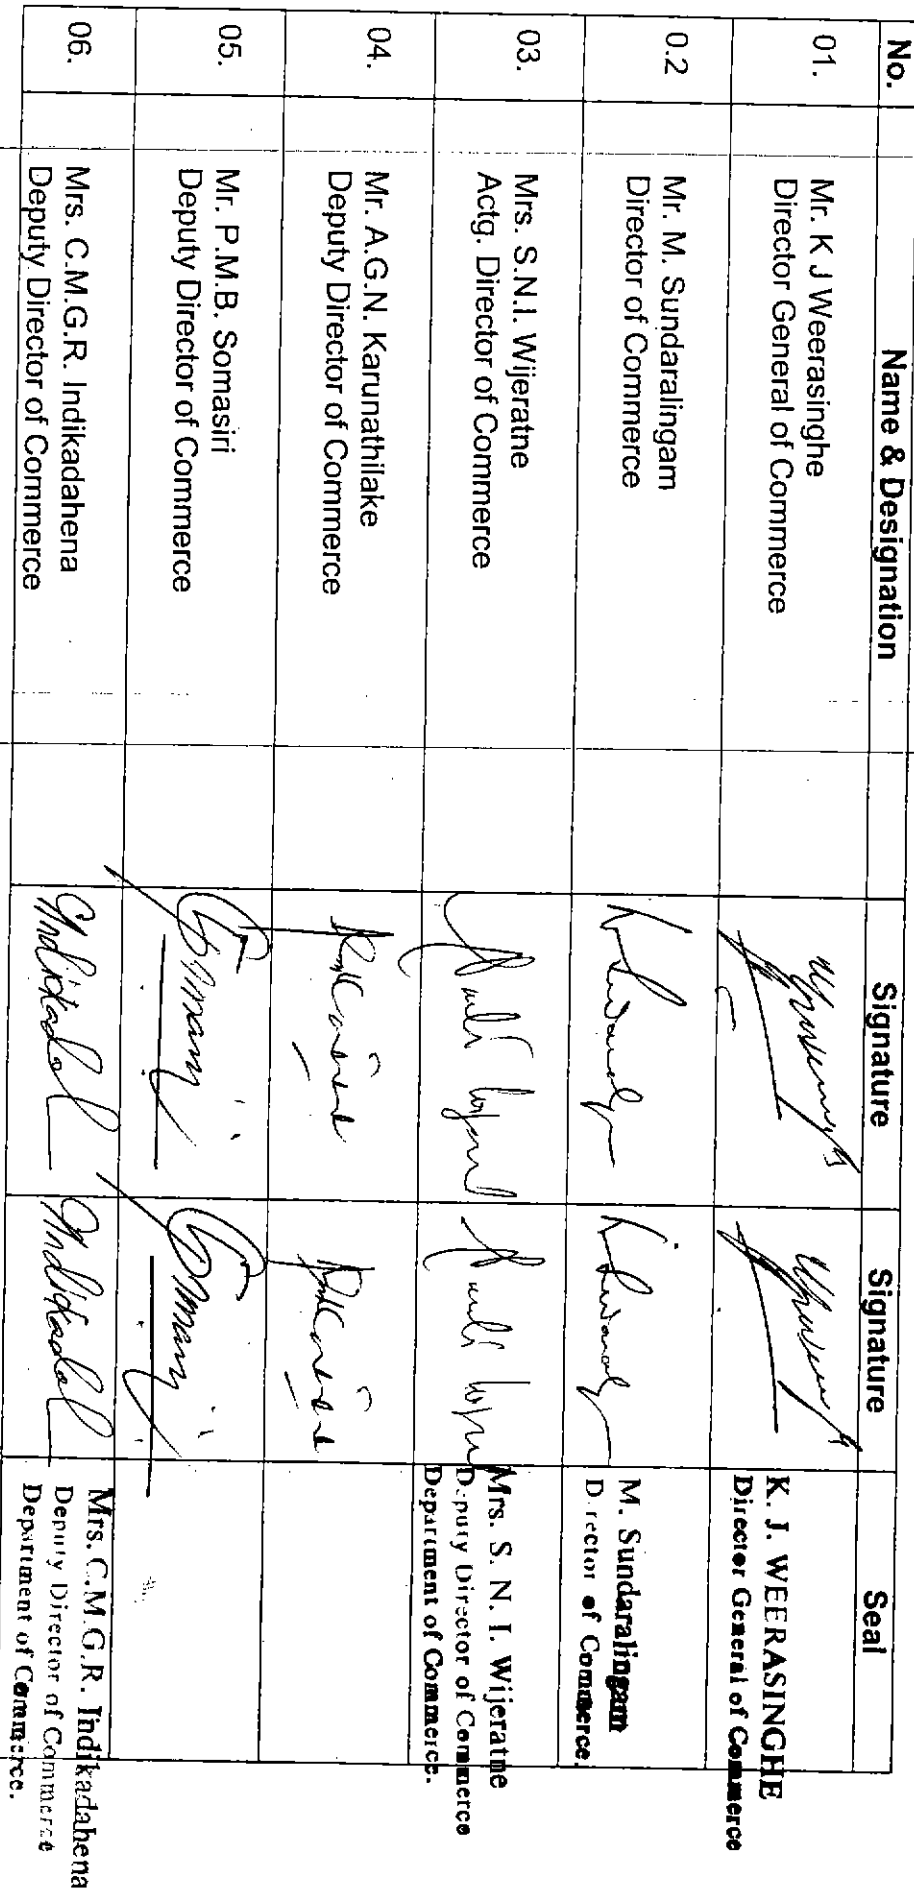 No. Name & Designation Signature Signature Seal
01. Mr. K J Weerasinghe
Director General of Commerce
K. J. WEERASINGHE
Director General of Commerce
0.2 Mr. M. Sundaralingam
Director of Commerce
M. Sundaralingam
Director of Commerce.
03. Mrs. S.N.I. Wijeratne
Actg. Director of Commerce
Mrs. S. N. I. Wijeratne
Deputy Director of Commerce
Department of Commerce.
04. Mr. A.G.N. Karunathilake
Deputy Director of Commerce
05. Mr. P.M.B. Somasiri
Deputy Director of Commerce
06. Mrs. C.M.G.R. Indikadahena
Deputy Director of Commerce
Mrs. C.M.G.R. Indikadahena
Deputy Director of Commerce
Department of Commerce.